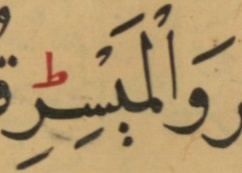 وَالْمَيْسِرِ ط